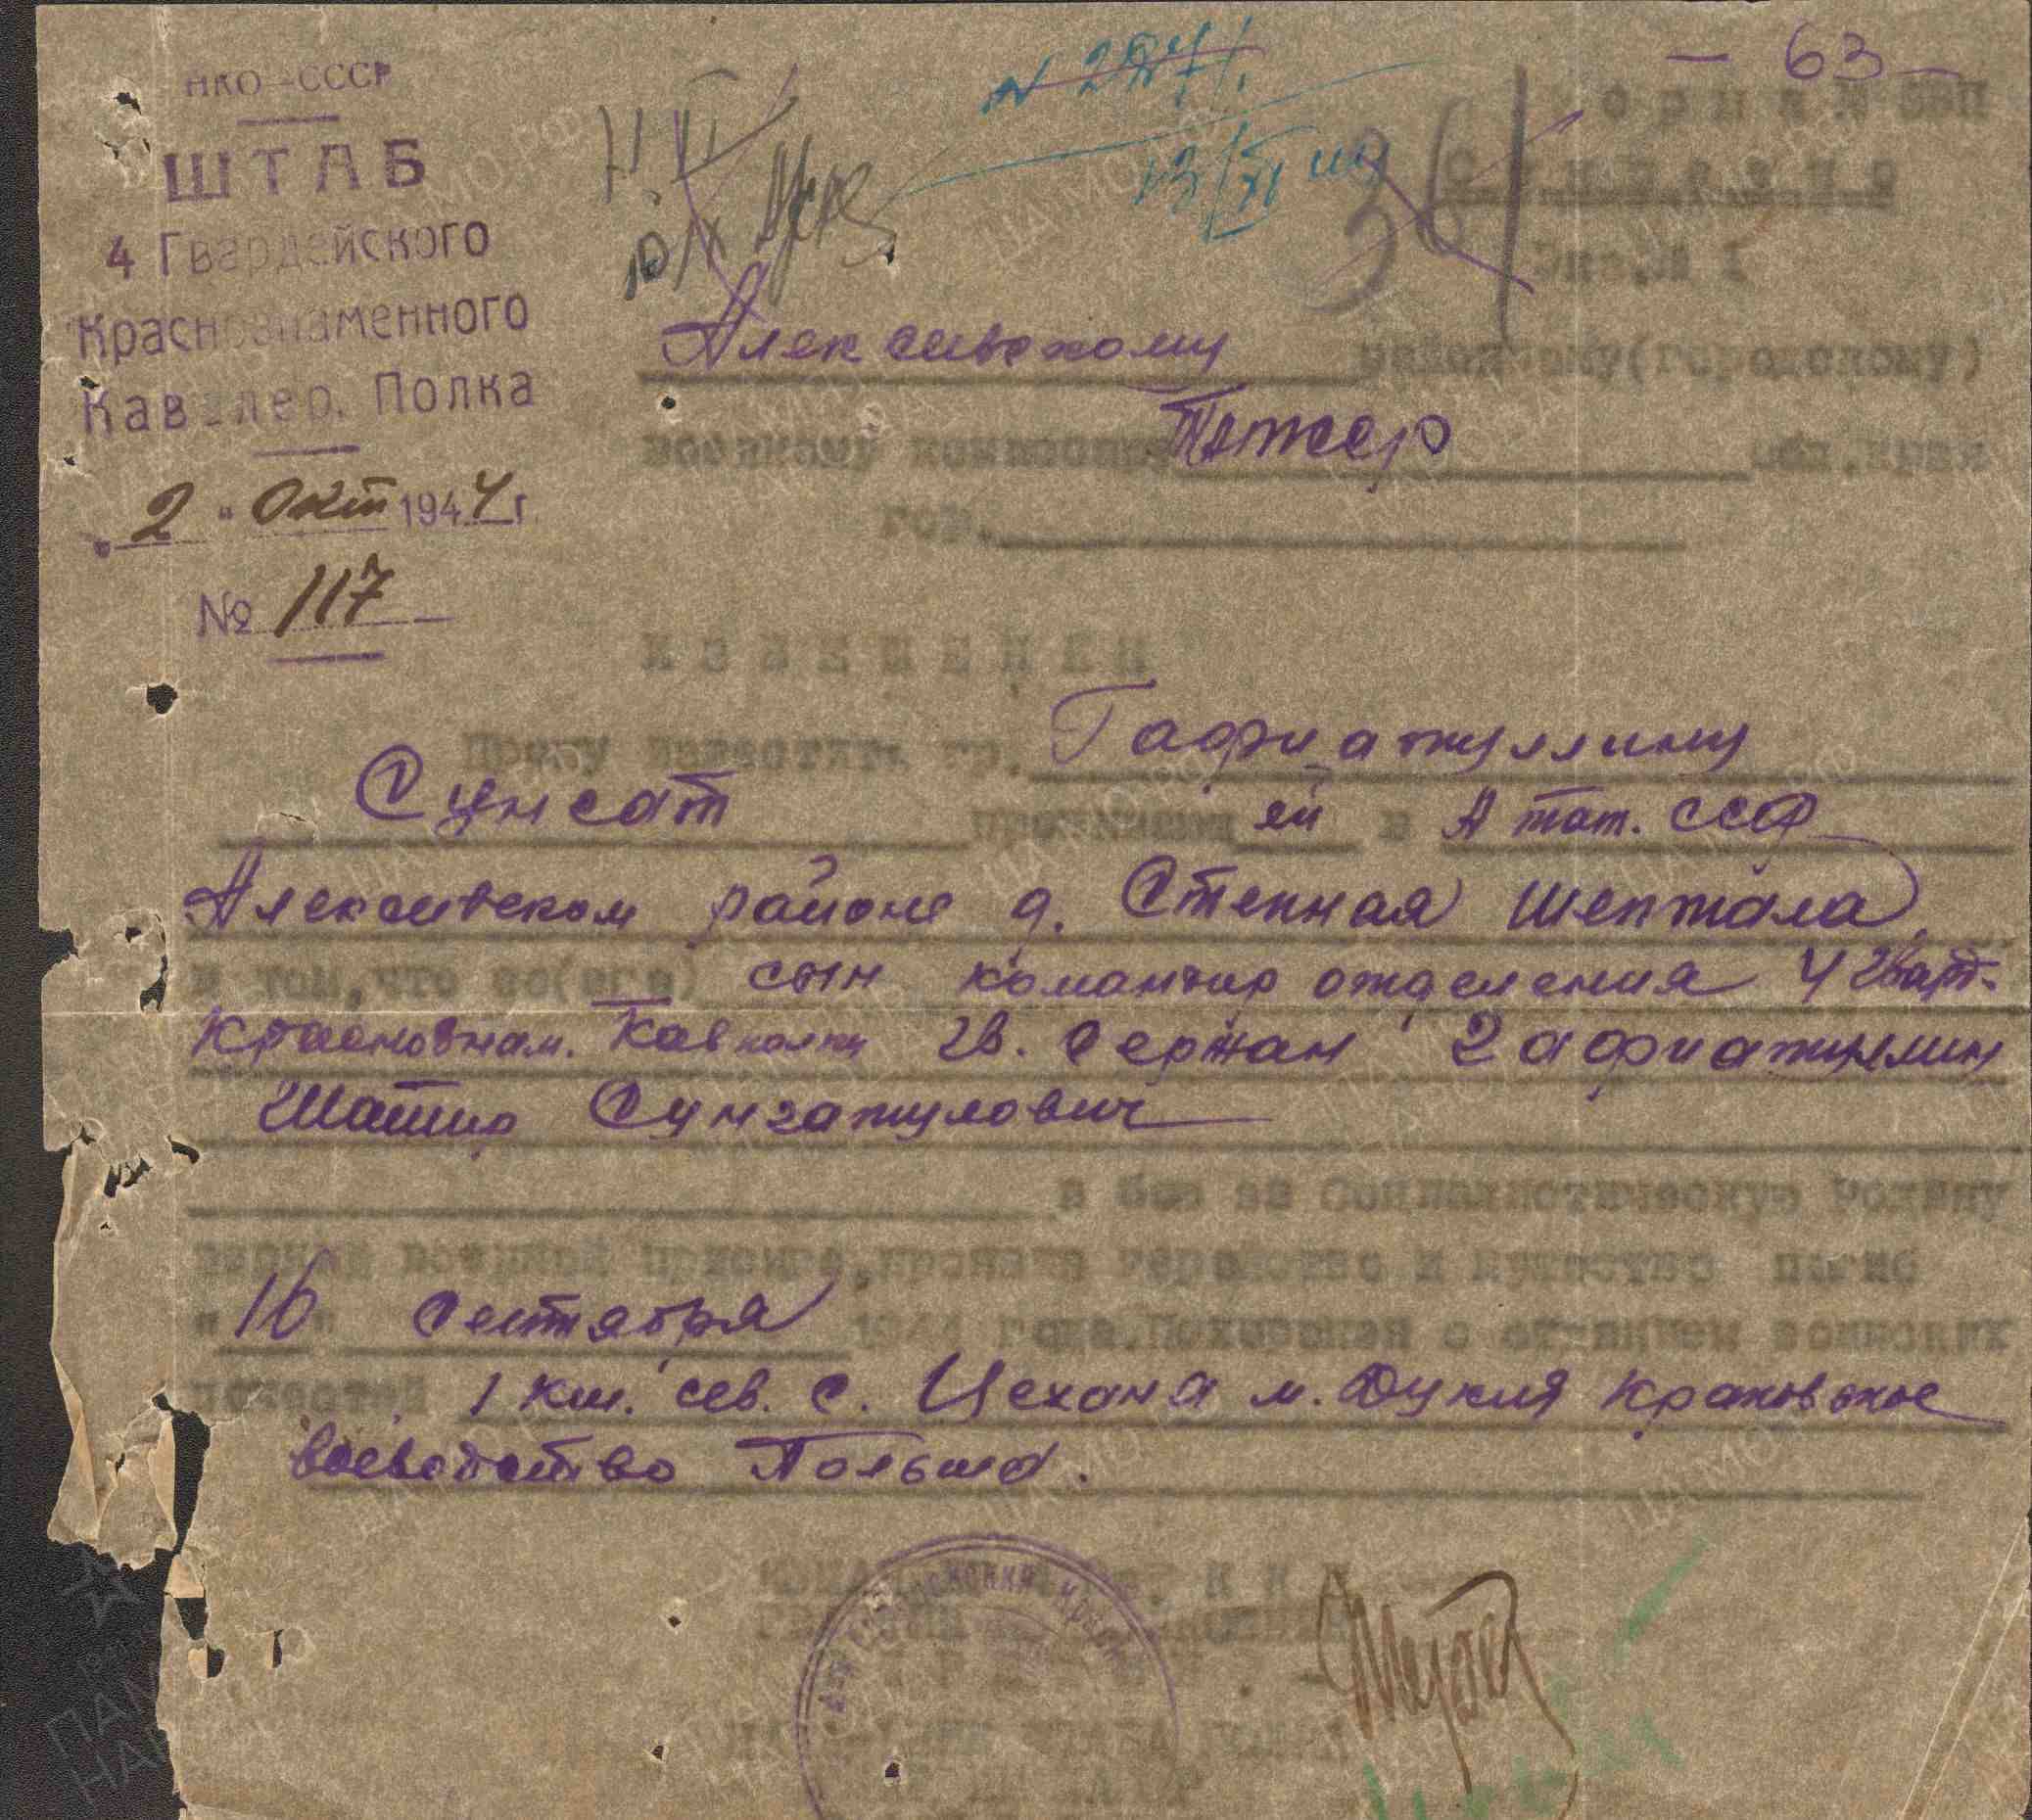 НКО-СССР
ШТАБ
4 Гвардейского
Краснознаменного
Кавалер. Полка
"2" окт 1944 г.
№ 117
- 63 -
№ 2871
13/XI
361
Экз.№ 1
Алексеевскому районному(городскому)
военному комиссару Татсср обл.,края
гор.
ИЗВЕЩЕНИЕ
Прошу известить гр. Гафиатуллину
Сунсат проживающ ей в А тат. ССР
Алексеевском районе д. Степная Шентала
в том,что ее(его) сын командир отделения 4 Гварт.
Краснознам. Кавполка Гв. Сержан Гафиатуллин
Шатип Сунгатулович
в бою за Социалистическую Родину
верный военной присяге,проявив геройство и мужество погиб
"16" сентября 1944 года.Похоронен с отданием воинских
почестей 1 км. сев. с. Цехана м. Дукля краковское
воеводство Польша.